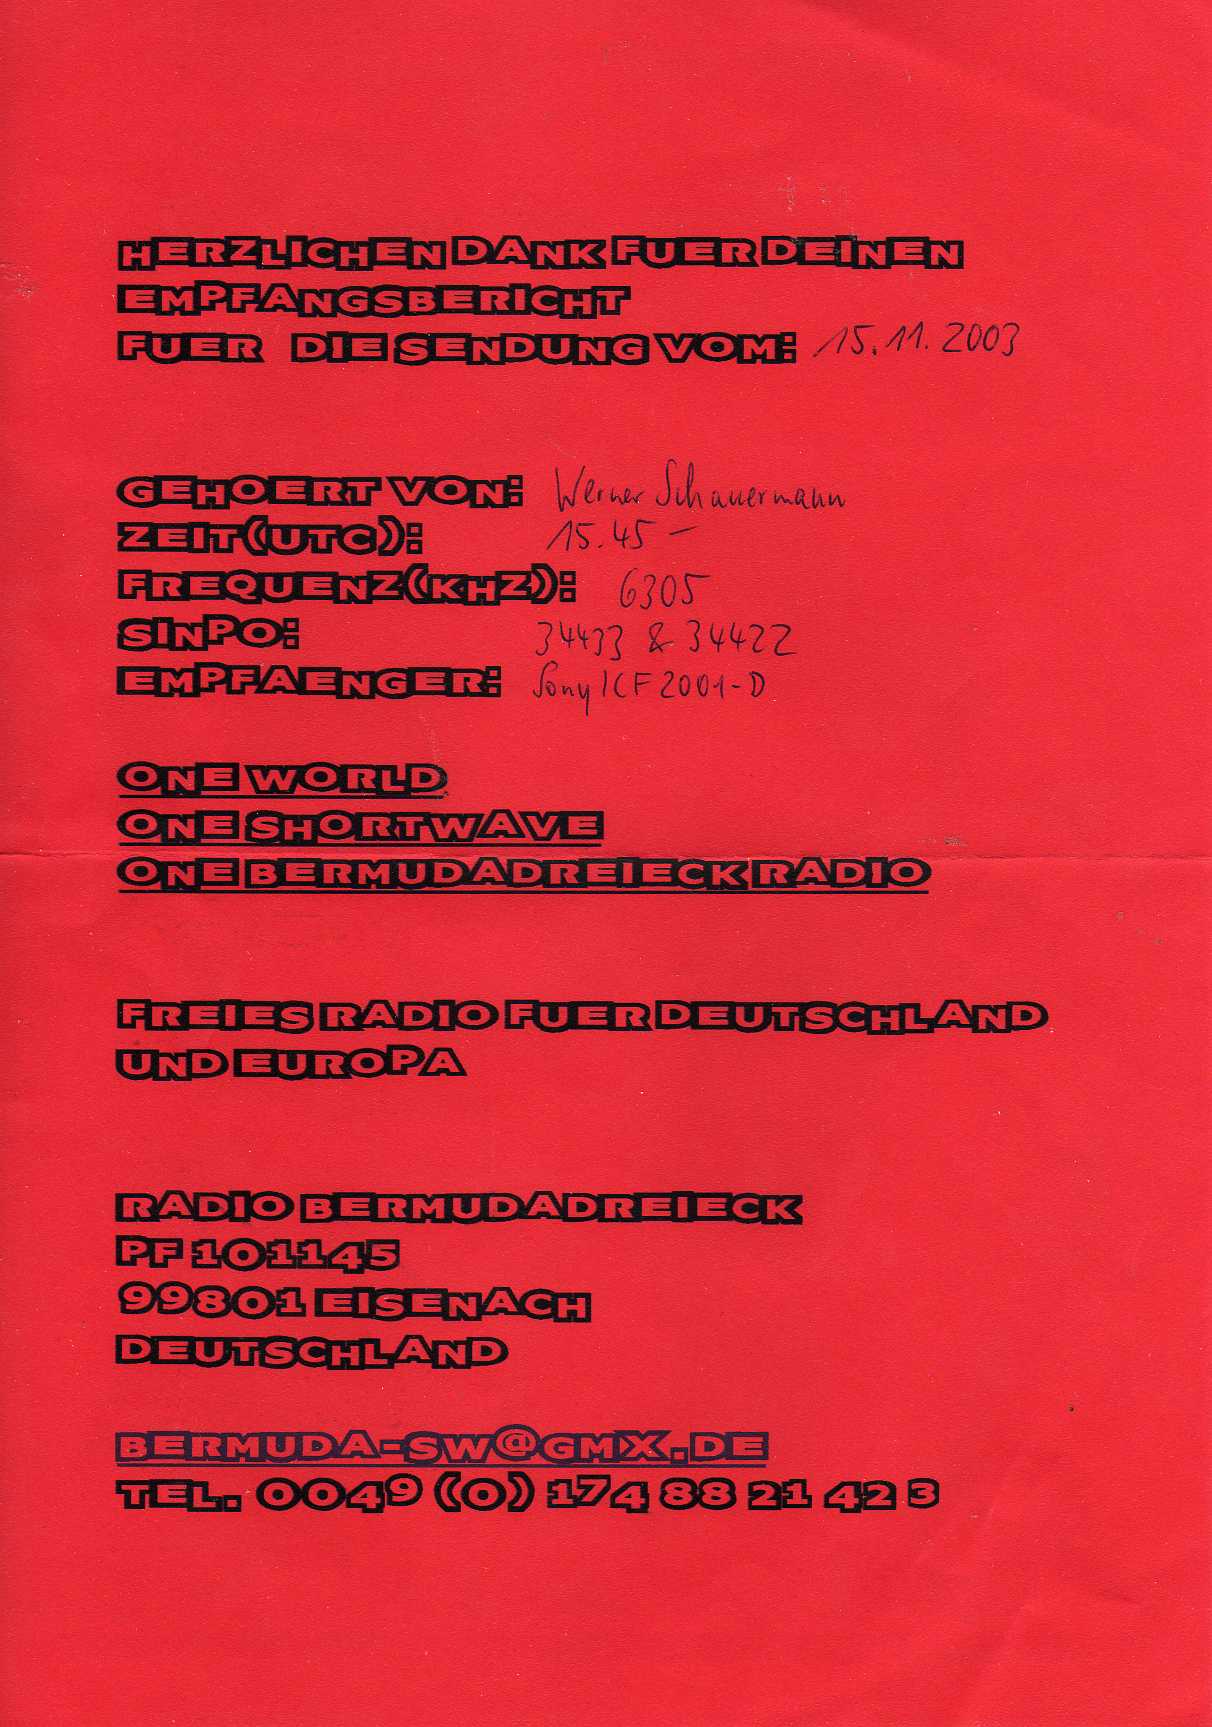 HERZLICHEN DANK FUER DEINEN
EMPFANGSBERICHT
FUER DIE SENDUNG VOM: 15.11.2003
GEHOERT VON: Werner Schauermann
ZEIT(UTC): 15.45 –
FREQUENZ(KHZ): 6305
SINPO: 34433 & 34422
EMPFAENGER: Sony ICF 2001-D
ONE WORLD
ONE SHORTWAVE
ONE BERMUDADREIECK RADIO
FREIES RADIO FUER DEUTSCHLAND
UND EUROPA
RADIO BERMUDADREIECK
PF 101145
99801 EISENACH
DEUTSCHLAND
BERMUDA-SW@GMX.DE
TEL. 0049 (0) 174 88 21 42 3